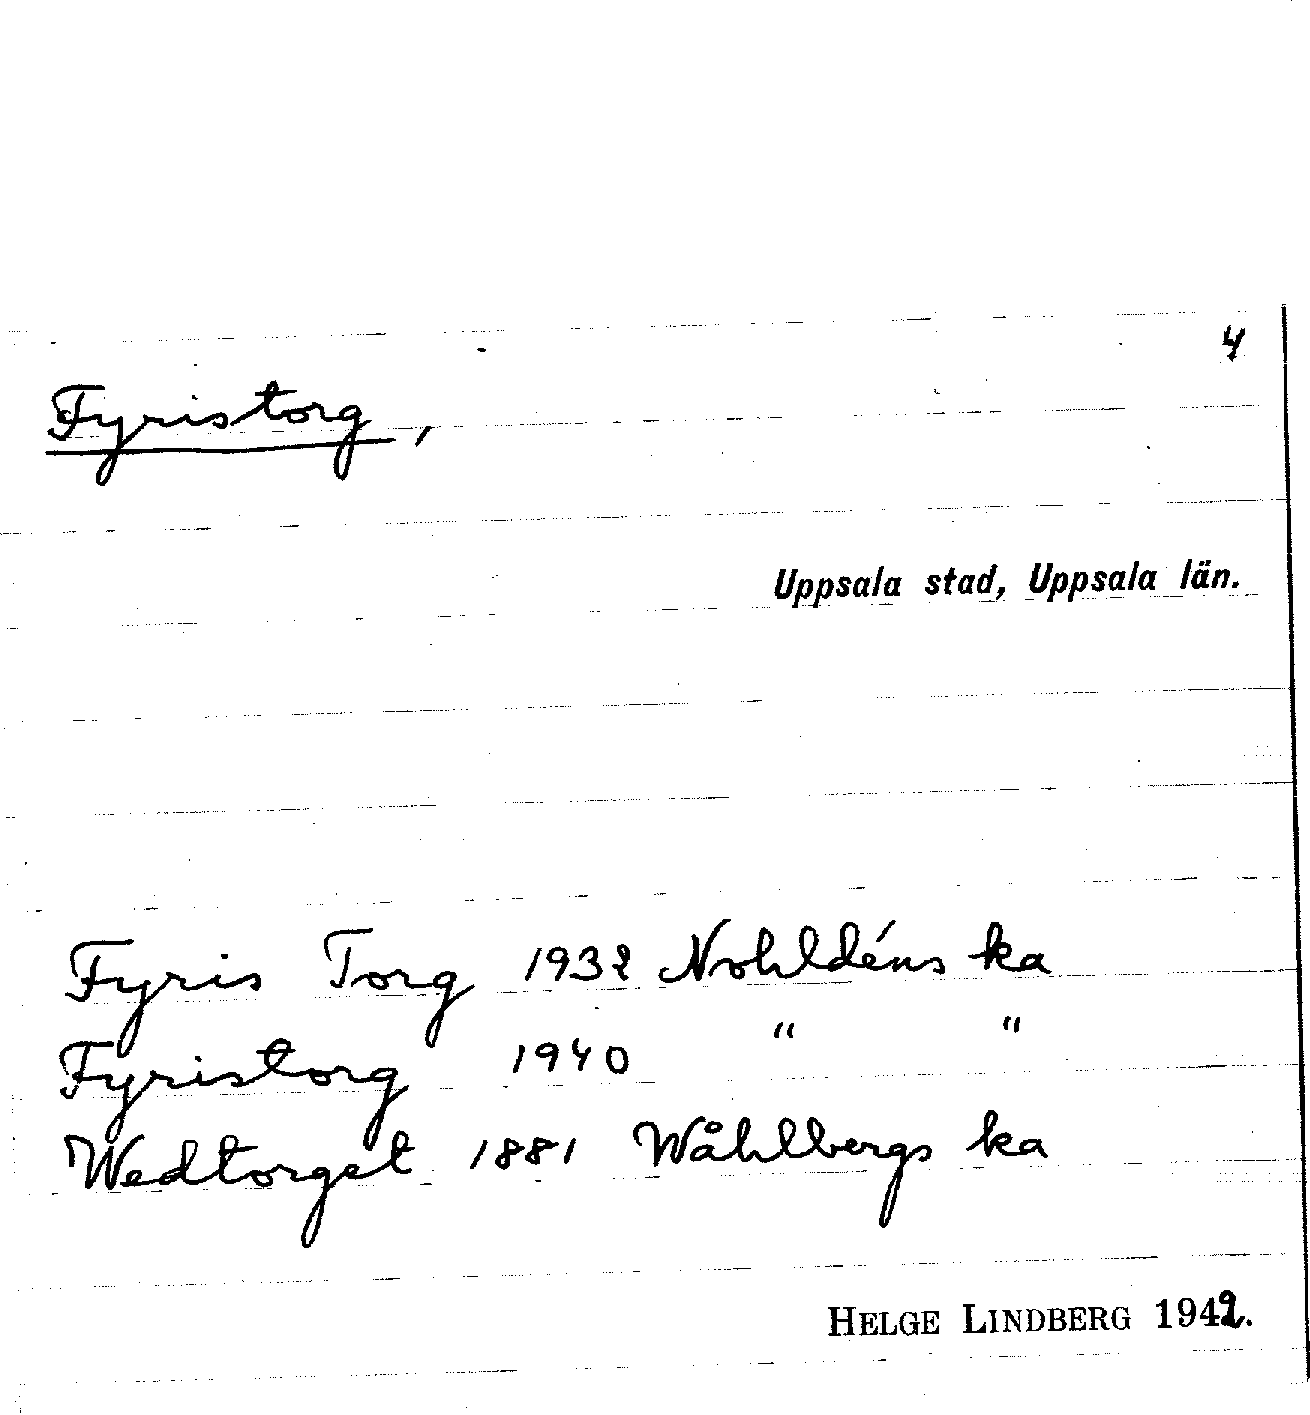 4
Fyristorg,
Uppsala stad, Uppsala län.
Fyris Torg 1932 Nohldéns ka
Fyristorg 1940 " "
Wedtorget 1881 Wåhlbergs ka
HELGE LINDBERG 1942.